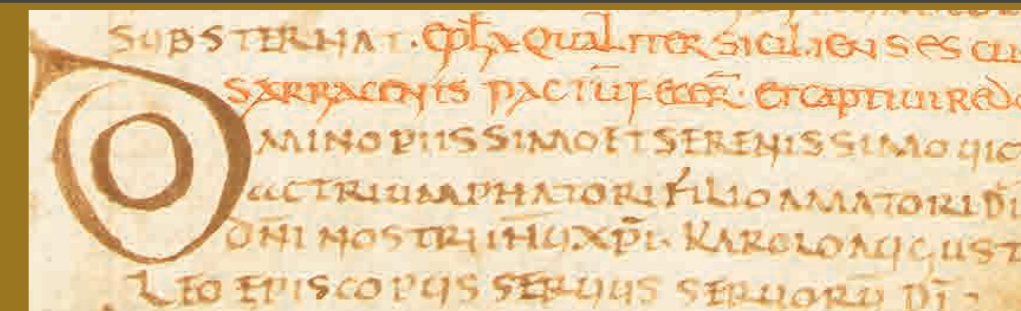 SUBSTERNAT. Ep̄la Qualiter SICILIENSES CU
SARRACENIS PACTŪ FECER̄. ET CAPTIUI REDD
DOMINO PIISSIMO ET SERENISSIMO UIC
AC TRIUMPHATORI FILIO AMATORI D̄I
DN̄I NOSTRI IH̄U XP̄I. KAROLO AUGUST
LEO EPISCOPUS SERUUS SERUORŪ D̄I